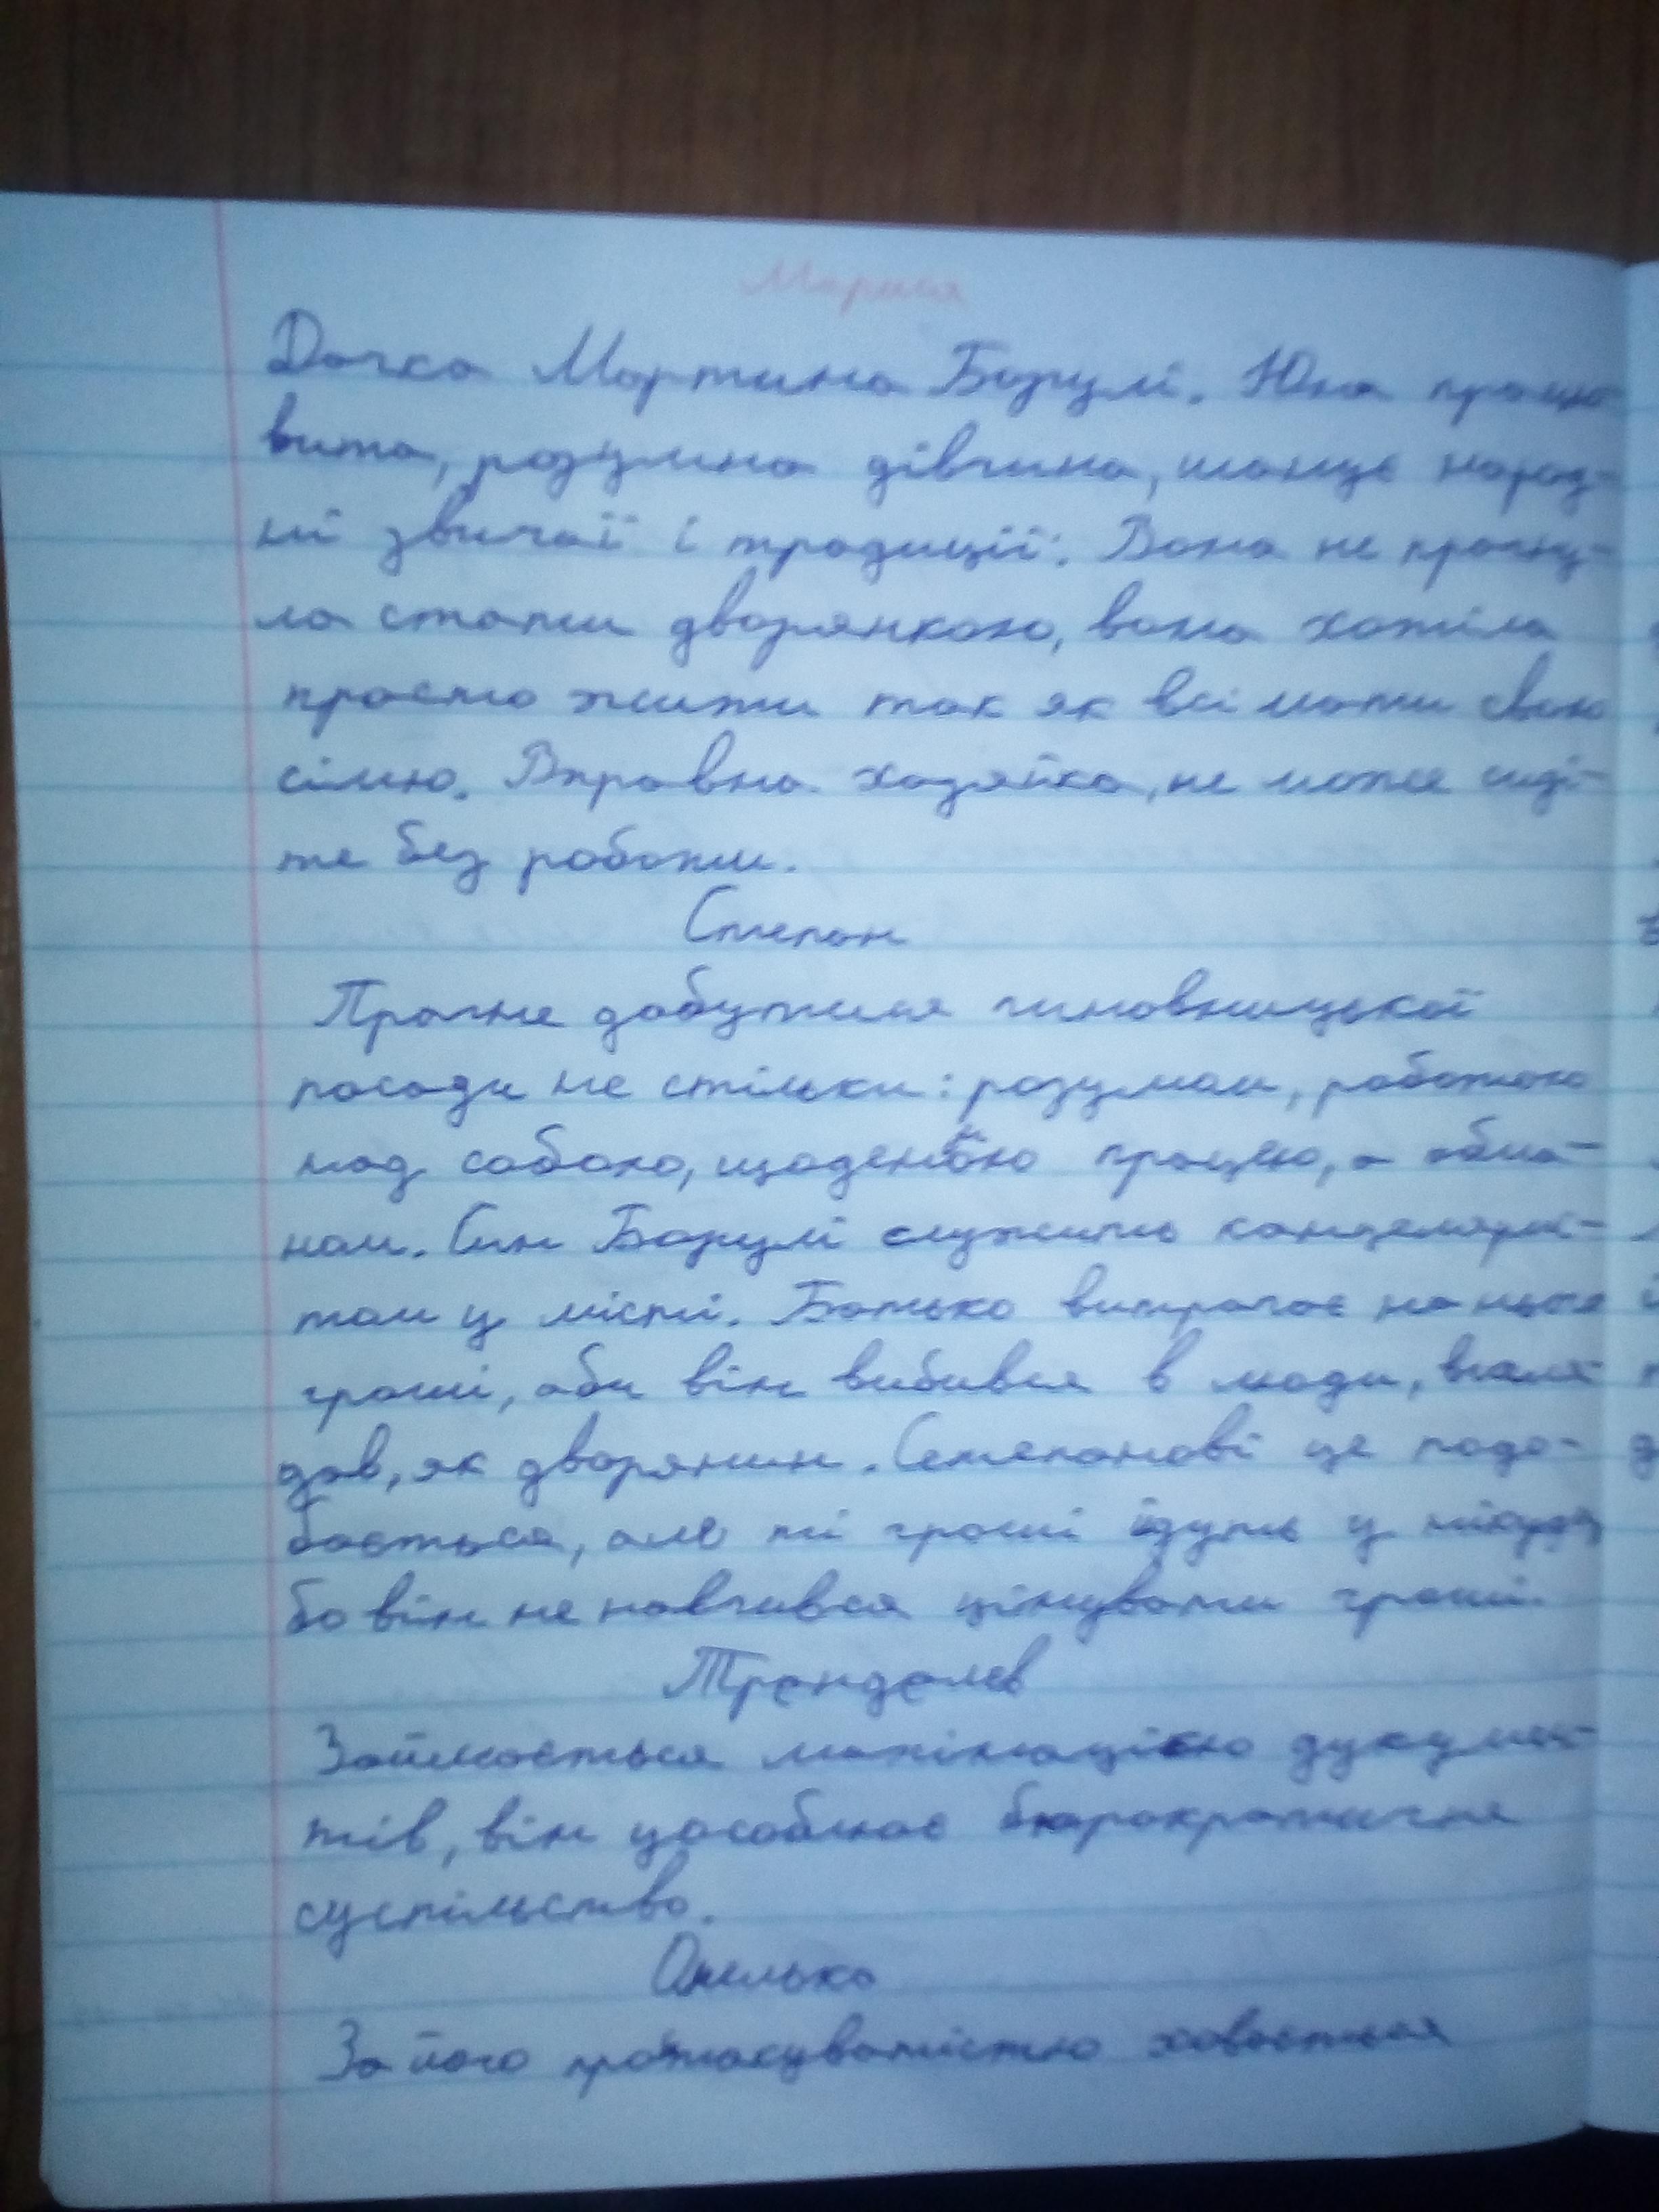 Марися
Дочка Мартина Борулі. Юна працьо-
вита, розумна дівчина, шанує народ-
ні звичаї і традиції. Вона не прагну-
ла стати дворянкою, вона хотіла
просто жити так як всі мати свою
сімю. Вправна хазяйка, не може сиді-
те без роботи.
Степан
Прагне добутися чиновницької
посади не стільки: розумом, роботою
над собою, щоденною працею, а обма-
ном. Син Борулі служить канцеляри-
том у місті. Батько витрачає на нього
гроші, аби він вибився в люди, вигля-
дав, як дворянин. Степанові це подо-
бається, але ті гроші йдуть у нікуди
бо він не навчився цінувати гроші.
Трандалєв
Займається махінацією дукумен-
тів, він уособлює бюрократичне
суспільство.
Омелько
За його простакуватістю ховається